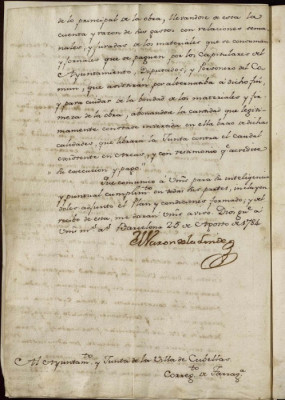 de lo principal de la obra, llevandose de esta la
cuenta y razon de sus gastos con relaciones sema-
nales, y jurados de los materiales que se consuman
y jornales que se paguen por los Capitulares del
Ayuntamiento, Diputados, y Personero del Co-
mun, que asistiran por alternativa à dicho fin,
y para cuidar de la bondad de los materiales y fir-
meza de la obra, abonando la cantidad que legiti-
mamente constare invertida en ella baxo de dichas
cuidados, que librara la Junta contra el Caudal
existente en Arcas, y con testimonio qe acredite
la execucion y pago.
para su inteligencia
y puntual cumplimto en todas sus partes, incluyen-
doles adjunto el Plan y condiciones formado, y del
recibo de esta, me daran Vms aviso. Dios gue à
Vms ms as Barcelona 25 de Agosto de 1784
Al Ayuntamto y Junta de la Villa de Cubellas
Corregto de Tarragª